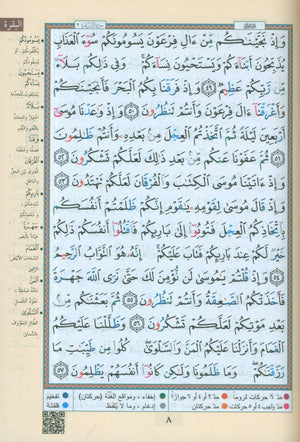 البقرة
وَإِذْ نَجَّيْنَاكُم مِّنْ ءَالِ فِرْعَوْنَ يَسُومُونَكُمْ سُوٓءَ ٱلْعَذَابِ
يُذَبِّحُونَ أَبْنَآءَكُمْ وَيَسْتَحْيُونَ نِسَآءَكُمْ وَفِي ذَٰلِكُم بَلَآءٌ
مِّن رَّبِّكُمْ عَظِيمٌ ٤٩ وَإِذْ فَرَقْنَا بِكُمُ ٱلْبَحْرَ فَأَنجَيْنَاكُمْ
وَأَغْرَقْنَآ ءَالَ فِرْعَوْنَ وَأَنتُمْ تَنظُرُونَ ٥٠ وَإِذْ وَٰعَدْنَا مُوسَىٰٓ
أَرْبَعِينَ لَيْلَةً ثُمَّ ٱتَّخَذْتُمُ ٱلْعِجْلَ مِنۢ بَعْدِهِۦ وَأَنتُمْ ظَٰلِمُونَ
٥١ ثُمَّ عَفَوْنَا عَنكُم مِّنۢ بَعْدِ ذَٰلِكَ لَعَلَّكُمْ تَشْكُرُونَ ٥٢
وَإِذْ ءَاتَيْنَا مُوسَى ٱلْكِتَٰبَ وَٱلْفُرْقَانَ لَعَلَّكُمْ تَهْتَدُونَ ٥٣
وَإِذْ قَالَ مُوسَىٰ لِقَوْمِهِۦ يَٰقَوْمِ إِنَّكُمْ ظَلَمْتُمْ أَنفُسَكُم
بِٱتِّخَاذِكُمُ ٱلْعِجْلَ فَتُوبُوٓا۟ إِلَىٰ بَارِئِكُمْ فَٱقْتُلُوٓا۟ أَنفُسَكُمْ ذَٰلِكُمْ
خَيْرٌ لَّكُمْ عِندَ بَارِئِكُمْ فَتَابَ عَلَيْكُمْ إِنَّهُۥ هُوَ ٱلتَّوَّابُ ٱلرَّحِيمُ
٥٤ وَإِذْ قُلْتُمْ يَٰمُوسَىٰ لَن نُّؤْمِنَ لَكَ حَتَّىٰ نَرَى ٱللَّهَ جَهْرَةً
فَأَخَذَتْكُمُ ٱلصَّٰعِقَةُ وَأَنتُمْ تَنظُرُونَ ٥٥ ثُمَّ بَعَثْنَٰكُم مِّنۢ
بَعْدِ مَوْتِكُمْ لَعَلَّكُمْ تَشْكُرُونَ ٥٦ وَظَلَّلْنَا عَلَيْكُمُ
ٱلْغَمَامَ وَأَنزَلْنَا عَلَيْكُمُ ٱلْمَنَّ وَٱلسَّلْوَىٰ كُلُوا۟ مِن طَيِّبَٰتِ مَا
رَزَقْنَٰكُمْ وَمَا ظَلَمُونَا وَلَٰكِن كَانُوٓا۟ أَنفُسَهُمْ يَظْلِمُونَ ٥٧
يَسُومُونَكُمْ
يَسْتَحْيُونَ
بَلَآءٌ
فَرَقْنَا
الْفُرْقَانَ
بَارِئِكُمْ
جَهْرَةً
الْغَمَامَ
الْمَنَّ
السَّلْوَى
مدّ ٦ حركات لزوماً مدّ ٢ أو ٤ أو ٦ جوازاً إخفاء، ومواقع الغُنَّة (حركتان) تفخيم
مدّ واجب ٤ أو ٥ حركات مدّ حركتان إدغام، وما لا يُلفَظ قلقلة
٨